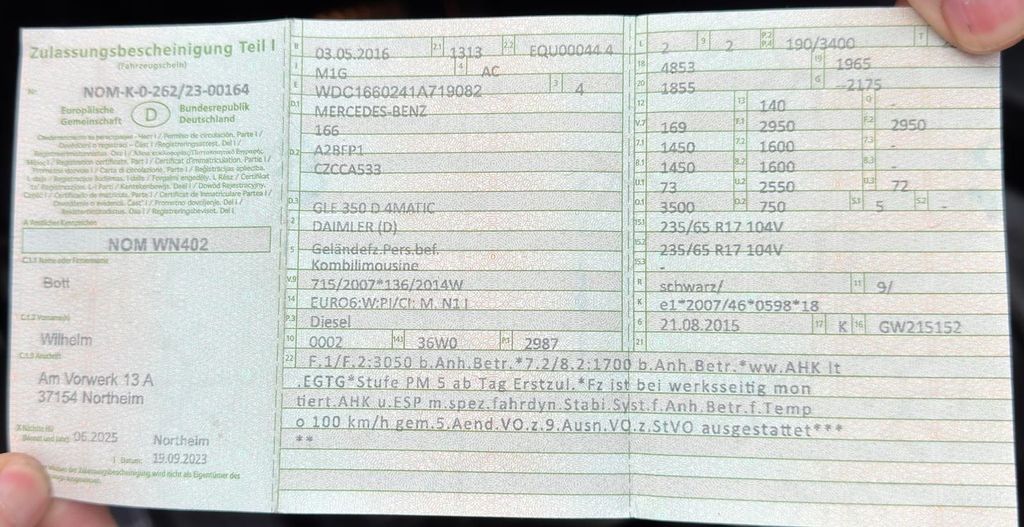 Zulassungsbescheinigung Teil I
(Fahrzeugschein)
Nr. NOM-K-0-262/23-00164
Europäische Gemeinschaft D Bundesrepublik Deutschland
A Amtliches Kennzeichen
NOM WN402
C.1.1 Name oder Firmenname
Bott
C.1.2 Vorname(n)
Wilhelm
C.1.3 Anschrift
Am Vorwerk 13 A
37154 Northeim
06.2025 Northeim
I Datum: 19.09.2023
B 03.05.2016 2.1 1313 2.2 EQU00044 4
J M1G 4 AC
E WDC1660241A719082 3 4
D.1 MERCEDES-BENZ
166
D.2 A28FP1
CZCCA533
D.3 GLE 350 D 4MATIC
2 DAIMLER (D)
5 Geländefz.Pers.bef.
Kombilimousine
V.9 715/2007*136/2014W
14 EURO6:W:PI/CI: M, N1 I
P.3 Diesel
10 0002 14.1 36W0 P.1 2987
L 2 9 2 P.2 P.4 190/3400 T
18 4853 19 1965
20 1855 G -2175
12 - 13 140 Q -
V.7 169 F.1 2950 F.2 2950
7.1 1450 7.2 1600 7.3 -
8.1 1450 8.2 1600 8.3 -
U.1 73 U.2 2550 U.3 72
O.1 3500 O.2 750 S.1 5 S.2 -
15.1 235/65 R17 104V
15.2 235/65 R17 104V
15.3 -
R schwarz/ 11 9/
K e1*2007/46*0598*18
6 21.08.2015 17 K 16 GW215152
21
22 F.1/F.2:3050 b.Anh.Betr.*7.2/8.2:1700 b.Anh.Betr.*ww.AHK lt
.EGTG*Stufe PM 5 ab Tag Erstzul.*Fz ist bei werksseitig mon
tiert.AHK u.ESP m.spez.fahrdyn.Stabi.Syst.f.Anh.Betr.f.Temp
o 100 km/h gem.5.Aend.VO.z.9.Ausn.VO.z.StVO ausgestattet***
**